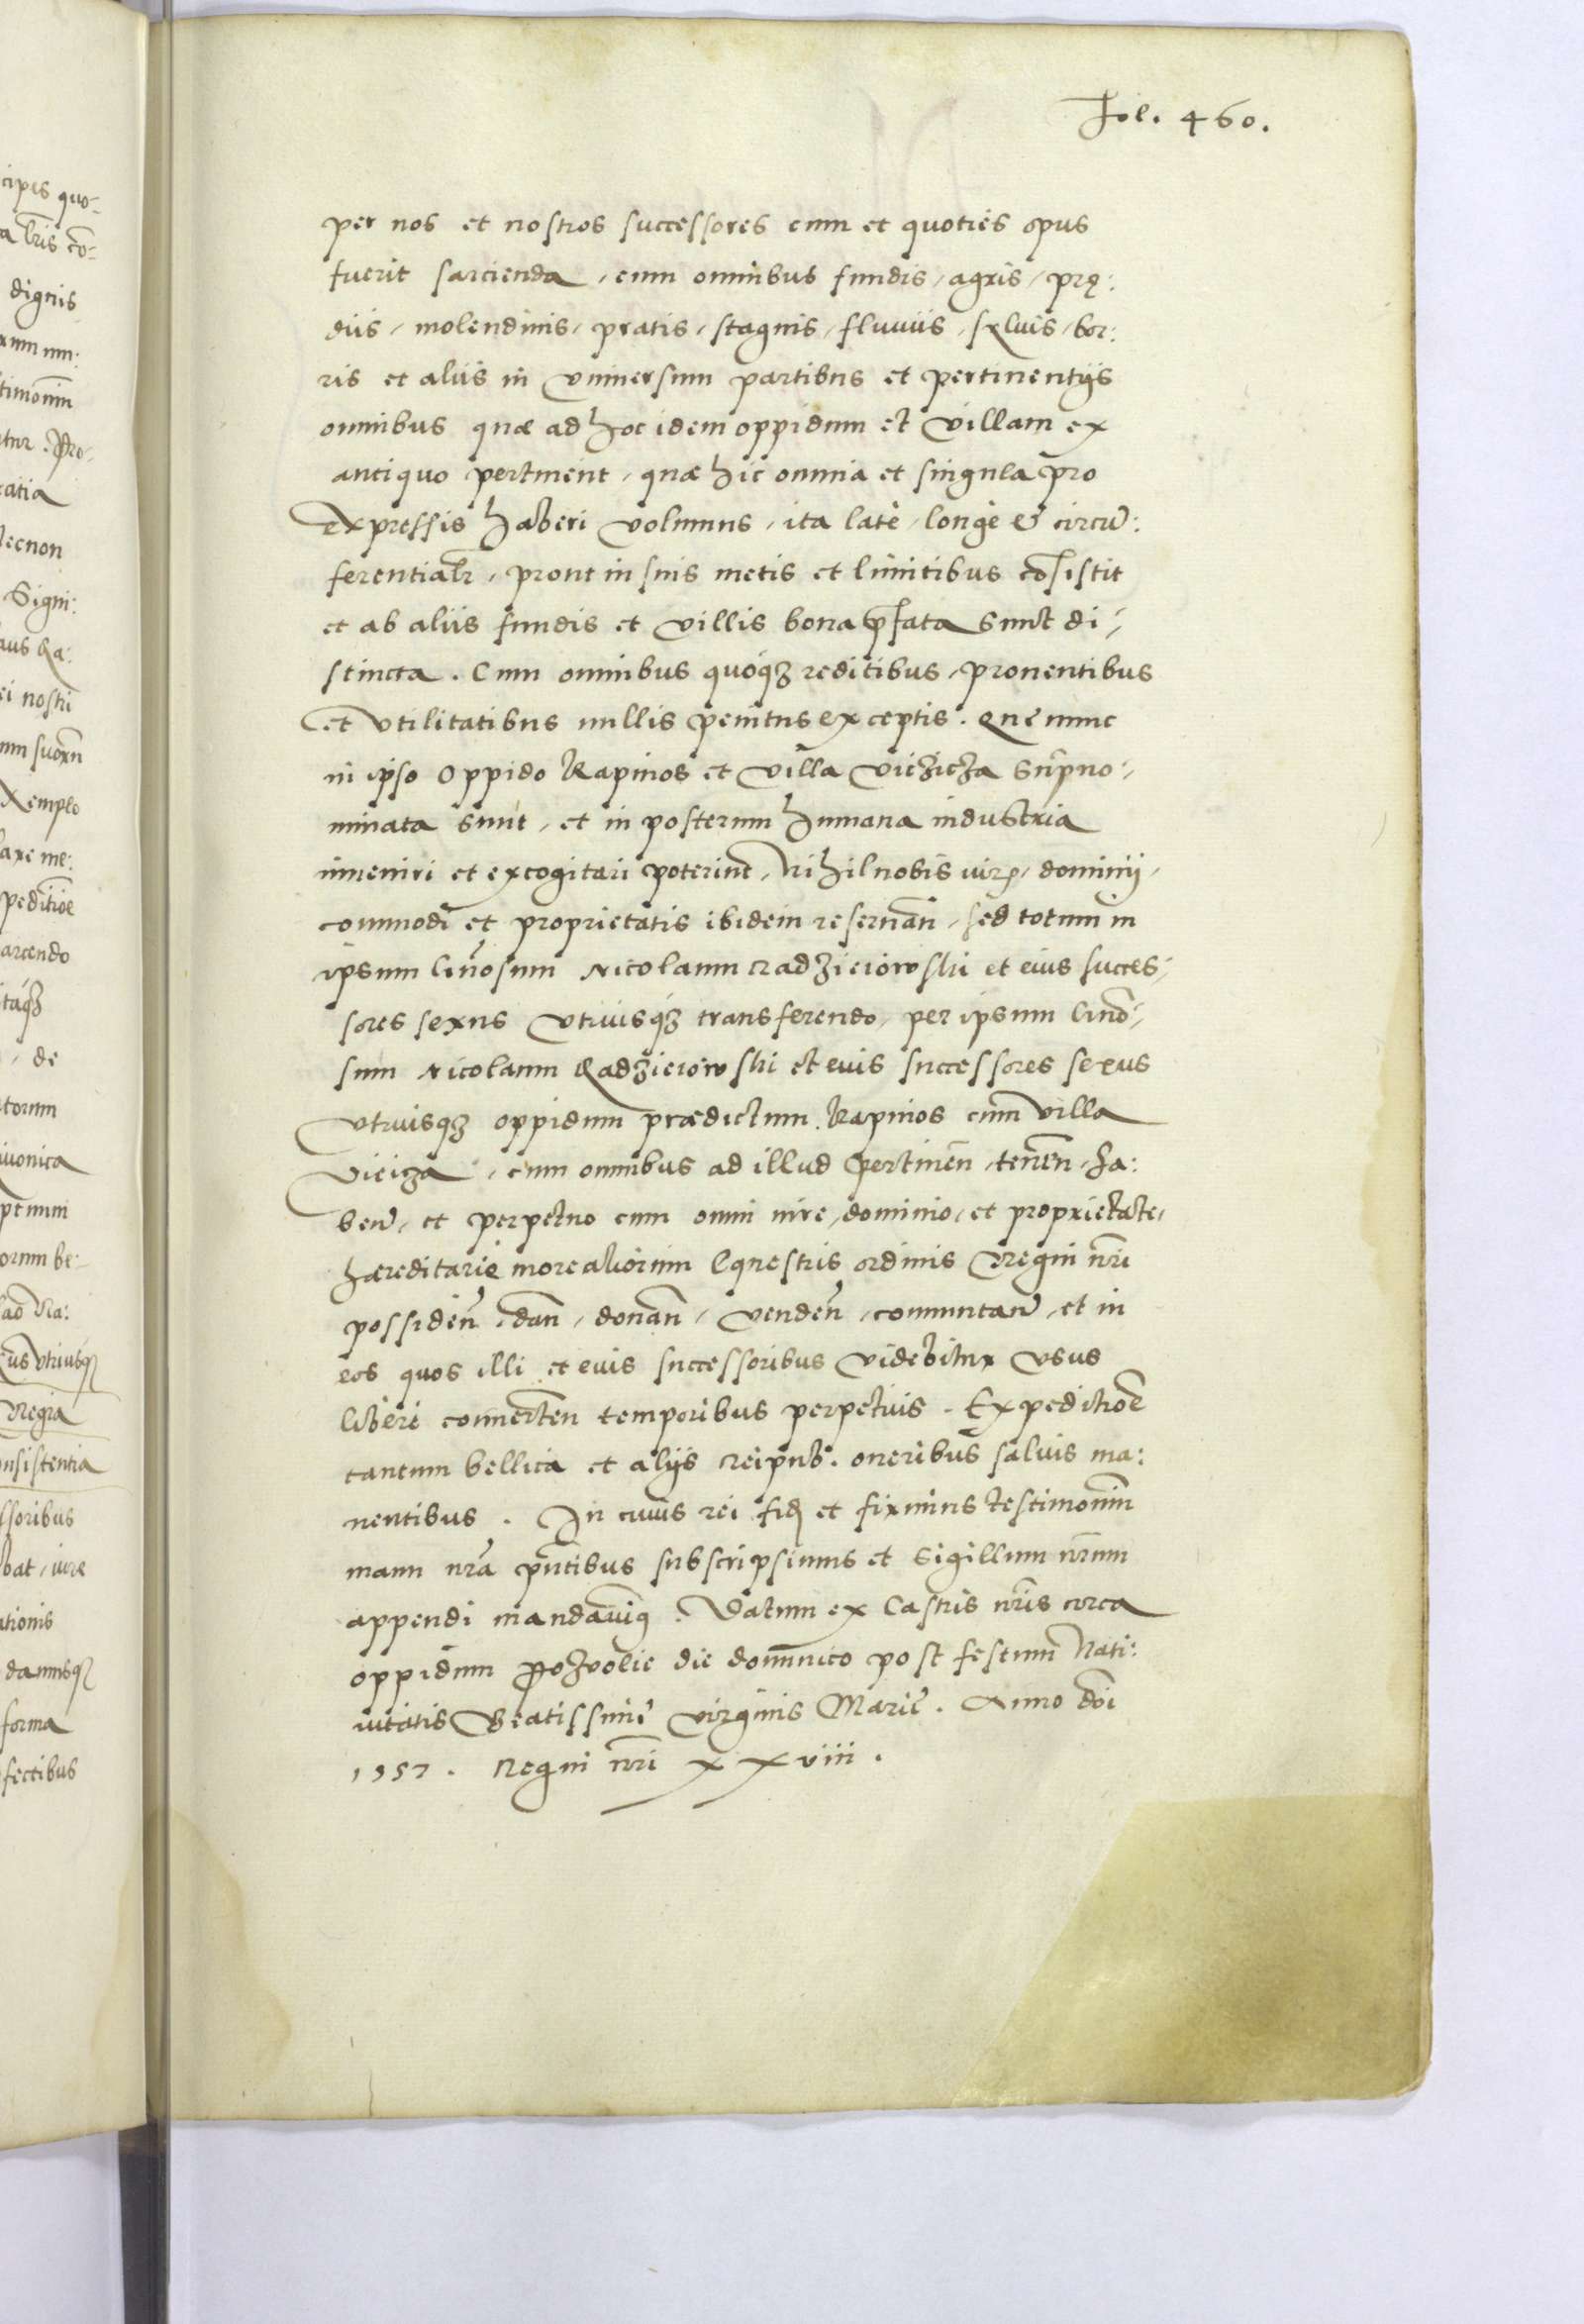 Fol. 460.
per nos et nostros successores cum et quoties opus
fuerit sarcienda, cum omnibus fundis, agris, prę:
diis, molendinis, pratis, stagnis, fluuiis, sẏluis, bor:
ris et aliis in vniuersum partibus et pertinentijs
omnibus quæ ad hoc idem oppidum et villam ex
antiquo pertinent, quæ hic omnia et singula pro
expressis haberi volumus, ita latè, longè & circũ:
ferentialr̃, prout in suis metis et limitibus cõsistit
et ab aliis fundis et villis bona p̃fata sunt di-
stincta. Cum omnibus quoq́ꝫ reditibus, prouentibus
et vtilitatibus nullis penitus exceptis. Quę nunc
in ipso oppido Kapinos et villa Viczicza sup̃no-
minata sunt, et in posterum humana industria
inueniri et excogitari poterint, Nihil nobis iuris, dominij,
commodi et proprietatis ibidem reseruañ, sed totum in
ipsum Gñosum Nicolaum Radzieiowski et eius succes-
sores sexus vtriusq́ꝫ transferendo, per ipsum Gñõ-
sum Nicolaum Radzieiowski et eius successores sexus
vtriusqꝫ oppidum prædictum Kapinos cum villa
Vieicza, cum omnibus ad illud pertineñ, teneñ, ha:
beñ, et perpetuo cum omni iure, dominio, et proprietate,
hæreditariè more aliorum Equestris ordinis Regni nr̃i
possideñ, dañ, donañ, vendeñ, commutañ, et in
eos quos illi et eius successoribus videbitur vsus
liberè conuerteñ temporibus perpetuis. Expeditiõe
tantum bellica et alijs Reipub. oneribus saluis ma:
nentibus. In cuius rei fidẽ et firmius testimoniũ
manu nr̃a pñtibus subscripsimus et Sigillum nr̃um
appendi mandauimꝰ. Datum ex Castris nr̃is circa
oppidum Pozvolie die dominico post festum Nati:
uitatis Beatissimę virginis Marię. Anno dñi
1557. Regni nr̃i xxviii.